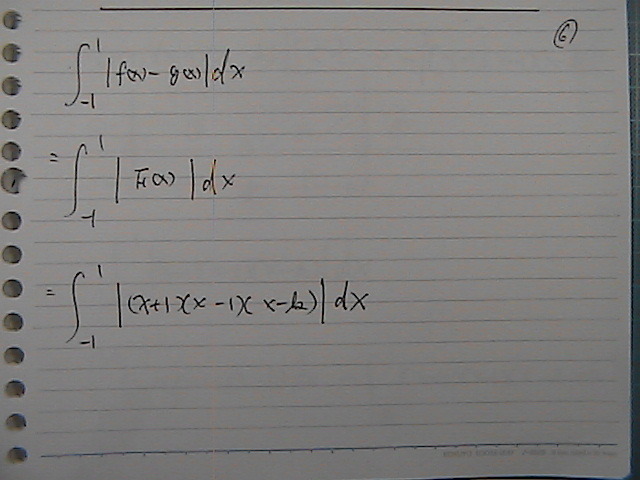 ⑥
∫_{-1}^{1} |f(x) - g(x)| dx
= ∫_{-1}^{1} | F(x) | dx
= ∫_{-1}^{1} |(x+1)(x-1)(x-k)| dx